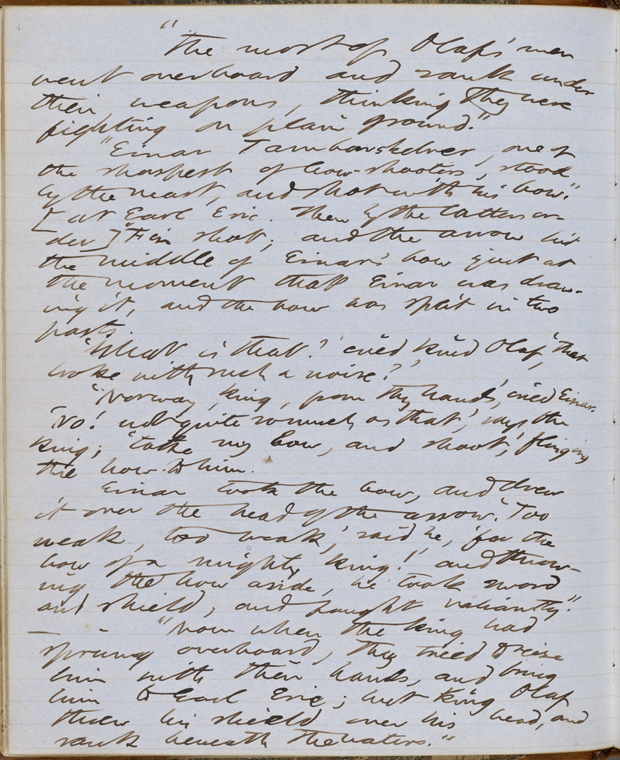 "The most of Olaf's men
went overboard and sank under
their weapons, thinking they were
fighting on plain ground."
"Einar Tamborskelver, one of
the sharpest of bow-shooters, stood
by the mast, and shot with his bow."
[at Earl Eric. Then by the latter's or-
der] "Finn shot; and the arrow hit
the middle of Einar's bow just at
the moment that Einar was draw-
ing it, and the bow was split in two
parts.
'What is that?' cried King Olaf, 'that
broke with such a noise?'
"Norway, king, from thy hands,' cried Einar.
'No! not quite so much as that,' says the
king; 'take my bow, and shoot,' flinging
the bow to him.
Einar took the bow, and drew
it over the head of the arrow. 'Too
weak, too weak,' said he, 'for the
bow of a mighty king!' and throw-
ing the bow aside, he took sword
and shield, and fought valiantly."
— "Now when the king had
sprung overboard, they tried to seize
him with their hands, and bring
him to Earl Eric; but King Olaf
threw his shield over his head, and
sank beneath the waters."